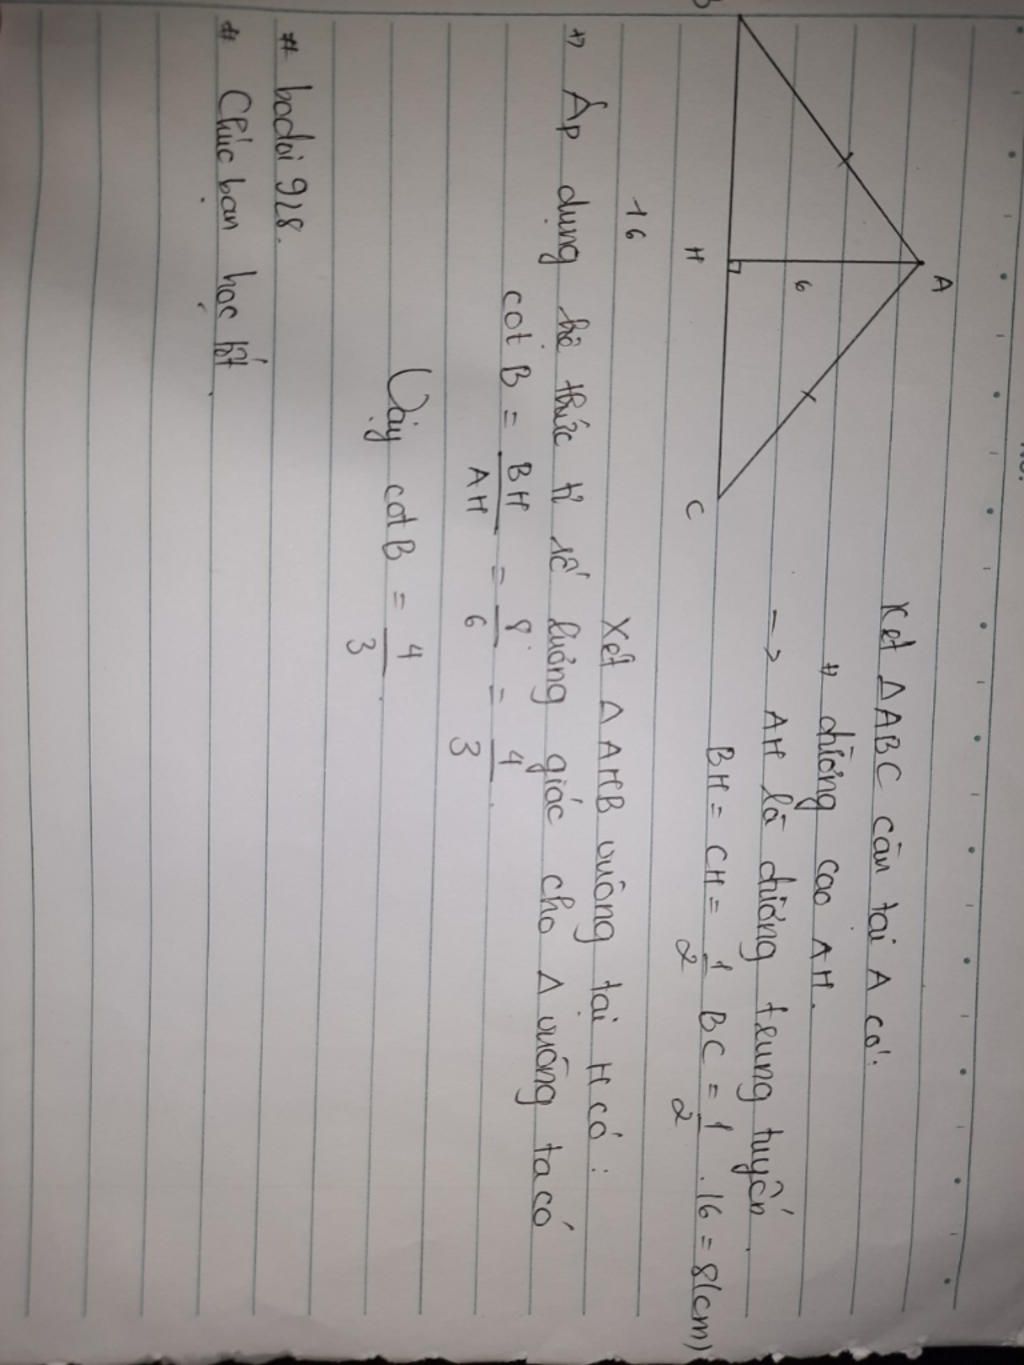 No:
A
6
B
H
C
16
Xét ΔABC cân tại A có:
+) đường cao AH.
-> AH là đường trung tuyến.
BH = CH = 1/2 BC = 1/2 . 16 = 8(cm)
Xét ΔAHB vuông tại H có:
+) Áp dụng hệ thức tỉ số lượng giác cho Δ vuông ta có
cot B = BH/AH = 8/6 = 4/3.
Vậy cot B = 4/3.
# bodoi 928.
# Chúc bạn học tốt.